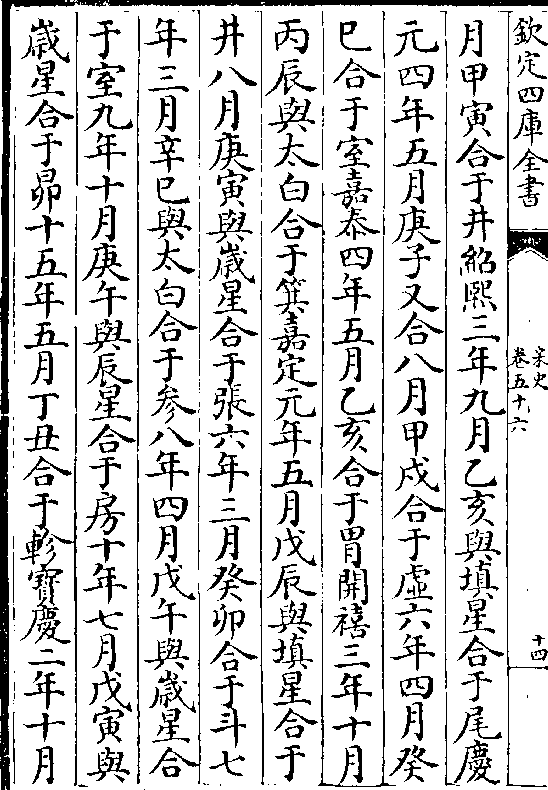 欽定四庫全書
宋史
卷五十六
十四
月甲寅合于井紹熙三年九月乙亥與填星合于尾慶
元四年五月庚子又合八月甲戌合于虛六年四月癸
巳合于室嘉泰四年五月乙亥合于胃開禧三年十月
丙辰與太白合于箕嘉定元年五月戊辰與填星合于
井八月庚寅與嵗星合于張六年三月癸卯合于斗七
年三月辛巳與太白合于参八年四月戊午與嵗星合
于室九年十月庚午與辰星合于房十年七月戊寅與
嵗星合于昴十五年五月丁丑合于軫寳慶二年十月